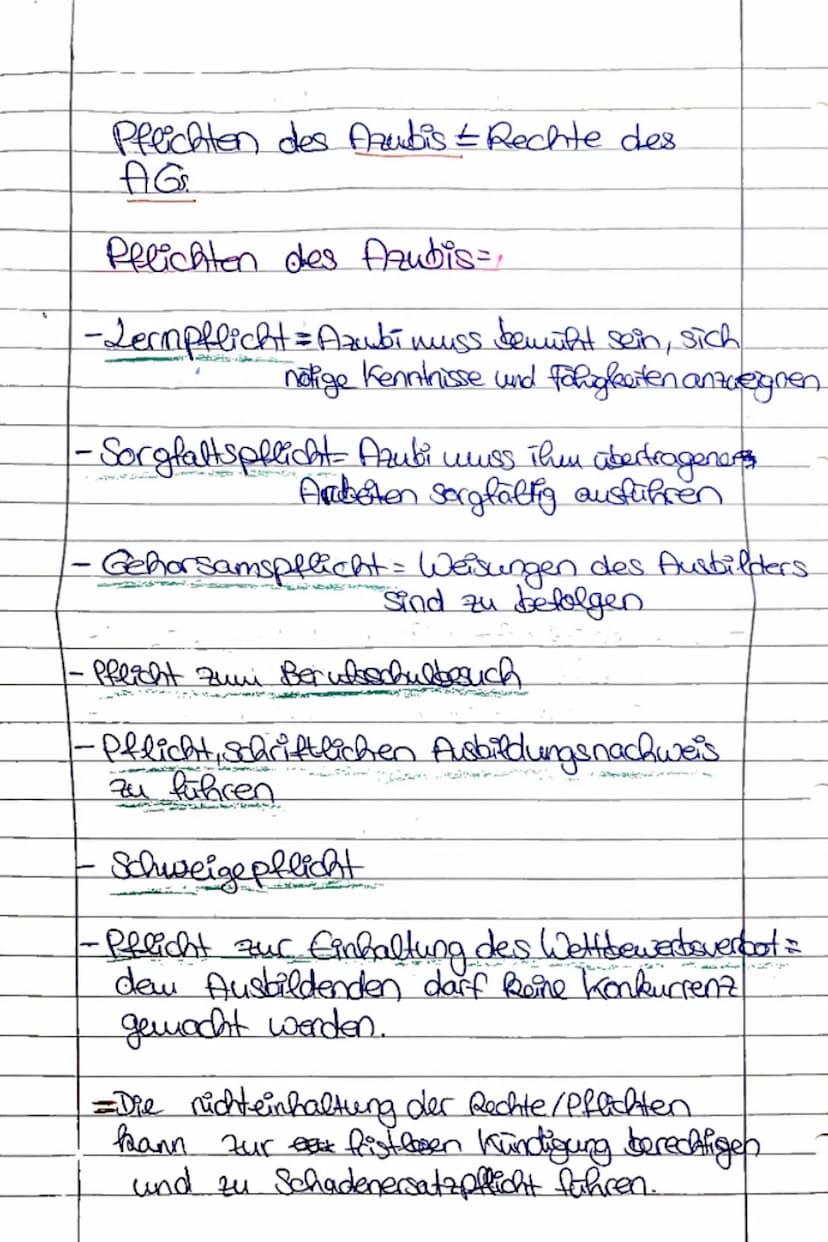 Pflichten des Azubis = Rechte des
AGs.
Pflichten des Azubis=
-Lernpflicht = Azubi muss bemüht sein, sich
nötige Kenntnisse und Fähigkeiten anzueignen
- Sorgfaltspflicht= Azubi muss ihm übertragenen
Arbeiten sorgfältig ausführen
- Gehorsamspflicht = Weisungen des Ausbilders
sind zu befolgen
- Pflicht zum Berufsschulbesuch
- Pflicht, schriftlichen Ausbildungsnachweis
zu führen
- Schweigepflicht
- Pflicht zur Einhaltung des Wettbewerbsverbot =
dem Ausbildenden darf keine Konkurrenz
gemacht werden.
=Die nichteinhaltung der Rechte/Pflichten
kann zur fristlosen Kündigung berechtigen
und zu Schadenersatzpflicht führen.